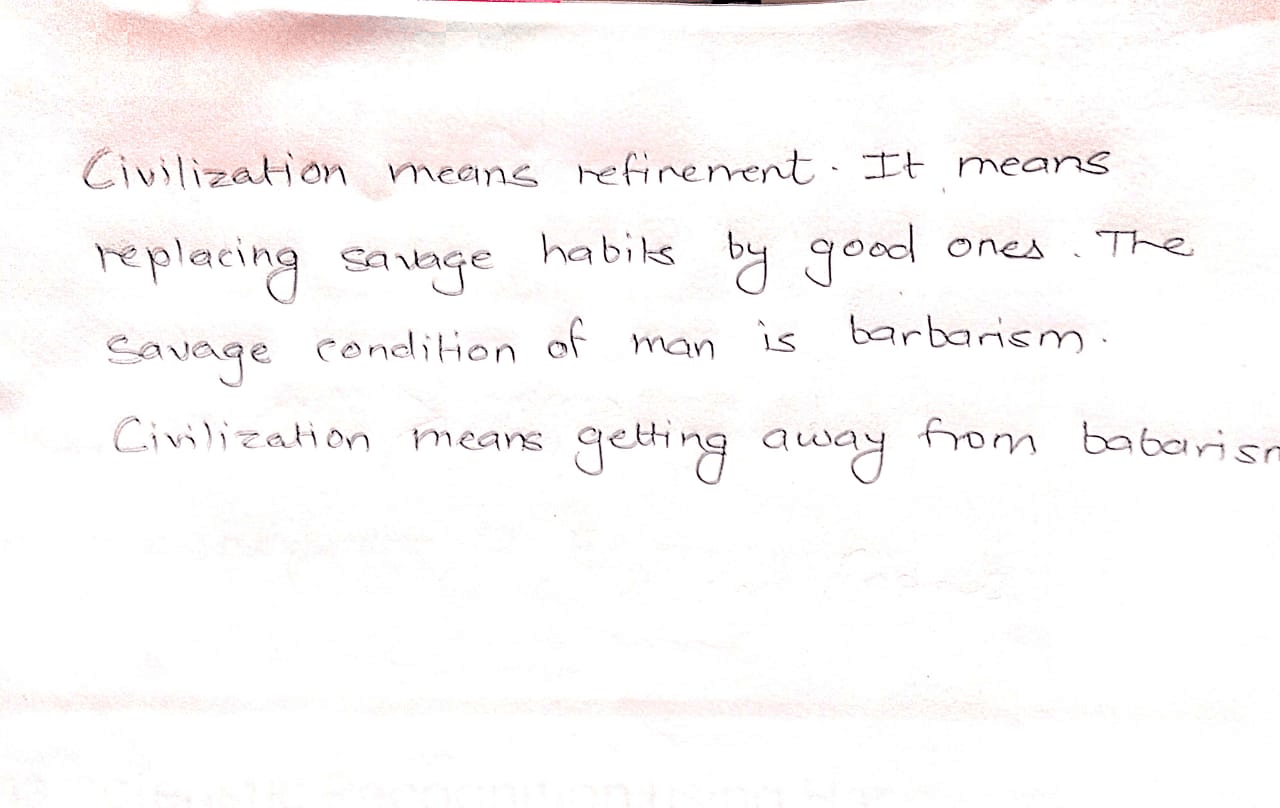 Civilization means refinement. It means
replacing savage habits by good ones. The
Savage condition of man is barbarism.
Civilization means getting away from babarism